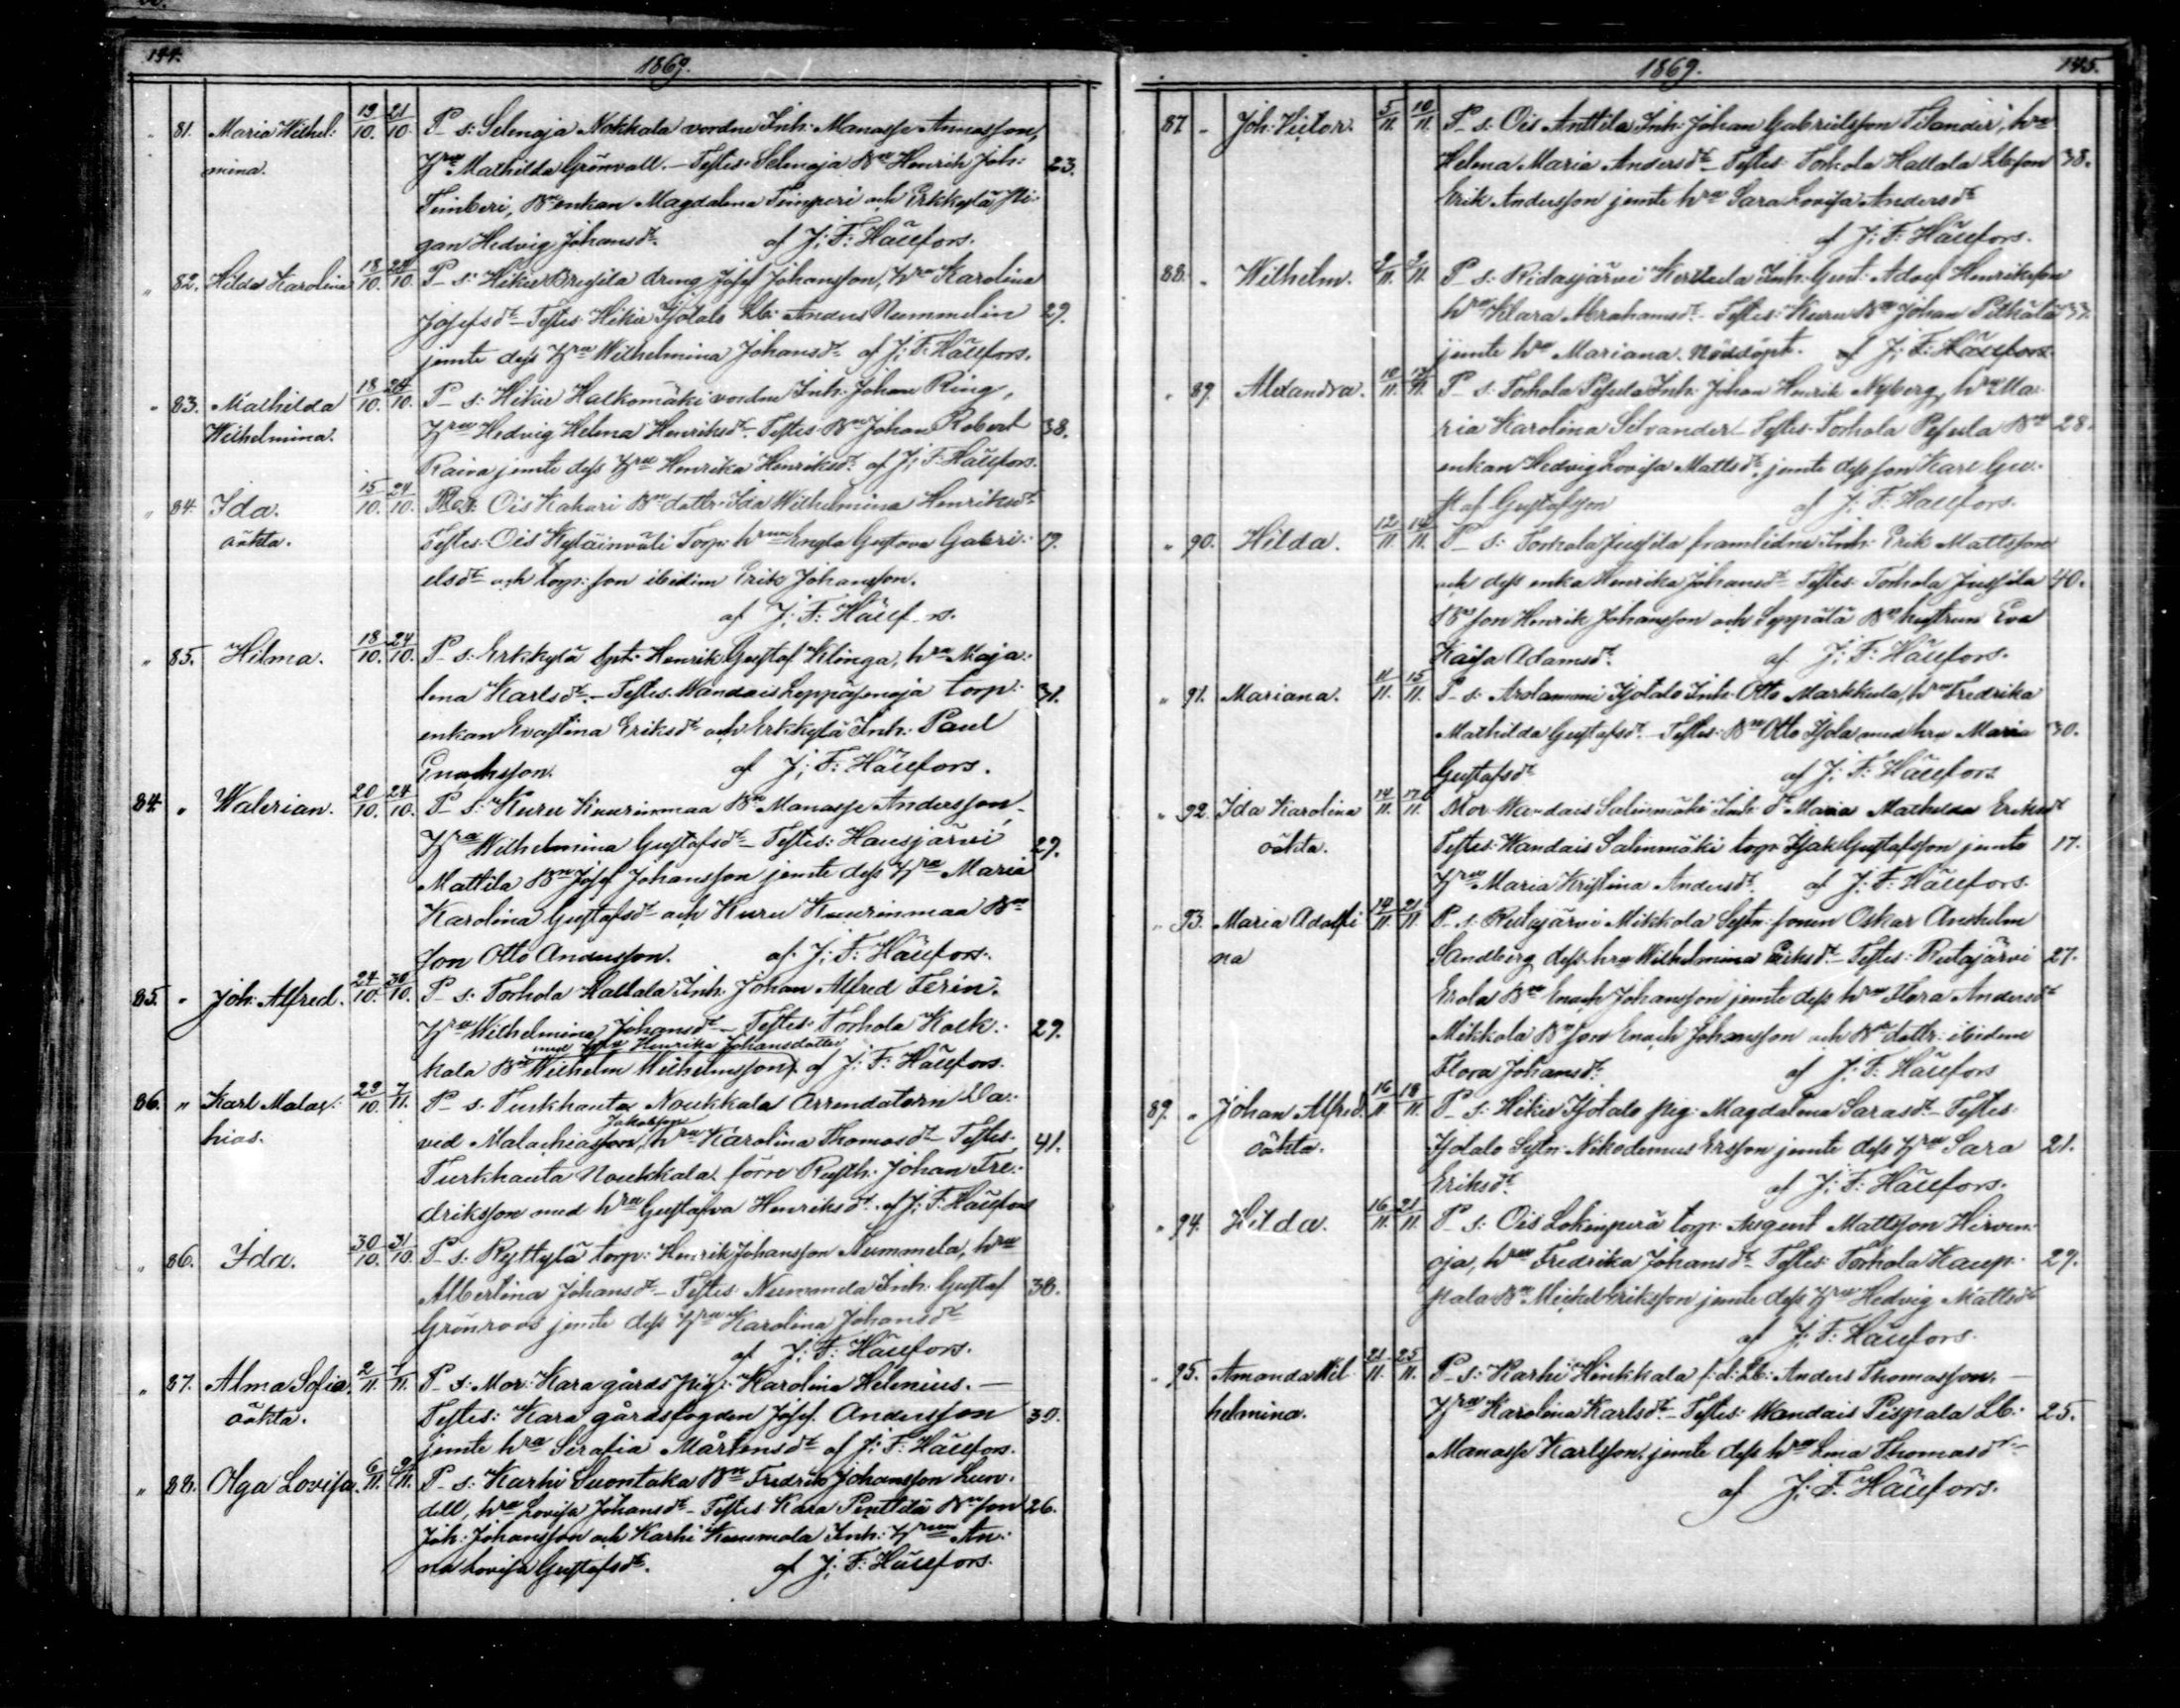 144.
1869.
" 81. Maria Wilhel: 19/10. 21/10. P_ s: Selenoja Nokkala vordne Inh: Manasse Annasson,
mina. Hru Mathilda Grönvall. — Testes: Selenoja Bn Henrik Joh: 23.
Timberi, Bn enkan Magdalena Timperi och Erkkylä pi-
gan Hedvig Johansdr. af J: F: Hällfors.
" 82. Hilda Karolina 18/10. 24/10. P_ s: Hikiä dreng Josef Johansson, Hru Karolina
Josefsdr — Testes: Hikiä Isotalo Lb: Anders Nummelin 29.
jemte dess Hru Wilhelmina Johansdr af J: F: Hällfors.
" 83. Mathilda 18/10. 24/10. P_ s: Hikiä Halkomäki vordne Inh: Johan Ring,
Wilhelmina. Hru Hedvig Helena Henriksdr. Testes: Bn Johan Robert 38.
Raiva jemte dess Hru Henrika Henriksdr. af J: F: Hällfors.
" 84. Ida. 15/10. 24/10. Mor: Ois Kahari Bn dottr. Ida Wilhelmina Henriksdr
oäkta. Testes: Ois Kyläinväli Torp: hrun Engla Gustava Gabri- 19.
elsdr och torp: son ibidim Erik Johansson.
af J: F: Hällfors.
" 85. Hilma. 18/10. 24/10. P_ s: Erkkylä Spt: Henrik Gustaf Klinga, hru Maja:
lena Karlsdr. — Testes: Wandais Leppäsenoja torp: 31.
enkan Evastina Eriksdr och Erkkylä Inh: Paul
Enochsson. af J: F: Hällfors.
84. " Walerian. 20/10. 24/10. P_ s: Kuru Kuurinmaa Bn Manasse Andersson,
Hru Wilhelmina Gustafsdr — Testes: Hausjärvi 29.
Mattila Bn Josef Johansson jemte dess Hru Maria
Karolina Gustafsdr och Kuru Kuurinmaa Bn
son Otto Andersson. af J: F: Hällfors.
85. " Joh: Alfred. 24/10. 30/10. P_ s: Torhola Hallala Inh: Johan Alfred Terin.
Hru Wilhelmina Johansdr — Testes: Torhola Kolk: 29.
med hru Henrika Johansdotter
kala Bn Wilhelm Wilhelmsson, af J: F: Hällfors.
86. " Karl Malac: 29/10. 7/11. P_ s: Turkhauta Noukkala Arrendatorn Da-
hias. Jakobsson
vid Malachiasson, hru Karolina Thomasdr Testes. 41.
Turkhauta Noukkala förre Rusth: Johan Fre-
driksson med hru Gustafva Henriksdr. af J: F: Hällfors
" 86. Ida. 30/10. 31/10. P_ s: Ryttylä torp: Henrik Johansson Nummela, hru
Albertina Johansdr — Testes: Nummela Inh: Gustaf 38.
Grönroos jemte dess Hru Karolina Johansdr
af J: F: Hällfors.
" 87. Alma Sofia. 2/11. 7/11. P_ s: Mor: Kara gårds pig: Karolina Helenius. —
oäkta. Testes: Kara gårdsfogden Josef Andersson 30.
jemte hru Serafia Mårtensdr af J: F: Hällfors.
" 88. Olga Lovisa. 6/11. P_ s: Karhi Suontaka Bn Fredrik Johansson Lun-
dell, hru Lovisa Johansdr — Testes: Kara Penttilä Bn son 26.
Joh: Johansson och Karhi Kummola Inh: Hrun An-
na Lovisa Gustafsdr. af J: F: Hällfors.
1869.
145.
87 " Joh: Victor. 5/11. 10/11. P_ s: Ois Anttila Inh: Johan Gabrielsson Silander, hru
Helena Maria Andersdr — Testes: Torhola Hallala Lb: son 38.
Erik Andersson jemte hru Sara Lovisa Andersdr
af J: F: Hällfors.
88. " Wilhelm. 9/11. 9/11. P_ s: Ridasjärvi Kerttula Inh: Gust: Adolf Henriksson
hru Klara Abrahamsdr. Testes: Kuru Bn Johan Pitkälä 37.
jemte hru Mariana. Nöddöpt. af J: F: Hällfors.
" 89. Alexandra. 10/11. P_ s: Torhola Pesula Inh: Johan Henrik Nyberg, hru Ma-
ria Karolina Silvander — Testes: Torhola Pesula Bn 28.
enkan Hedvig Lovisa Mattsdr. jemte dess son Karl Gu-
staf Gustafsson af J: F: Hällfors.
" 90. Hilda. 12/11. 14/11. P_ s: Torhola Jussila framlidne Inh: Erik Mattsson
och dess enka Henrika Johansdr Testes: Torhola Jussila 40.
Bn son Henrik Johansson och Seppälä Bn hustrun Eva
Kaisa Adamsdr. af J: F: Hällfors.
" 91. Mariana. 11/11. 15/11. P_ s: Arolammi Isotalo Inh: Otto Markkula, hru Fredrika
Mathilda Gustafsdr. — Testes: Bn Otto Isotalo med hru Maria 30.
Gustafsdr af J: F: Hällfors.
" 92. Ida Karolina 14/11. 17/11. Mor Wandais Salinmäki Inh: dr Maria Mathilda Eriksdr
oäkta. Testes: Wandais Salinmäki torp: Isak Gustafsson jemte 17.
Hru Maria Kristina Andersdr. af J: F: Hällfors.
" 93. Maria Adolfi 14/11. 21/11. P_ s: Rutajärvi Mikkola Sytn: sonen Oskar Anshelm
na Sandberg dess hru Wilhelmina Eriksdr — Testes: Rutajärvi 27.
Erola Bn Enoch Johansson jemte dess hru Flora Andersdr
Mikkola Bn son Enoch Johansson och Bn dottr: ibidem
Flora Johansdr. af J: F: Hällfors
89. " Johan Alfred. 16/11. 18/11. P_ s: Hikiä Isotalo pig: Magdalena Sarasdr — Testes:
oäkta. Isotalo Sytn: Nikodemus Ersson jemte dess Hru Sara 21.
Eriksdr. af J: F: Hällfors.
" 94. Hilda. 16/11. 21/11. P_ s: Ois Lokinperä torp: August Mattsson Hirven-
oja, hru Fredrika Johansdr Testes: Torhola Kaup- 29.
pala Bn Michel Eriksson jemte dess Hru Hedvig Mattsdr
af J: F: Hällfors.
" 95. Amanda Wil 21/11. 25/11. P_ s: Karhi Hinkkala f: d: Lb: Anders Thomasson. —
helmina. Hru Karolina Karlsdr. — Testes: Wandais Pispala Lb: 25.
Manasse Karlsson jemte dess hru Lena Thomasdr —
af J: F: Hällfors.